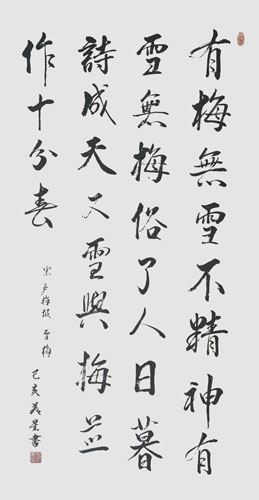 有梅無雪不精神有
雪無梅俗了人日暮
詩成天又雪與梅並
作十分春
宋卢梅坡 雪梅
己亥書